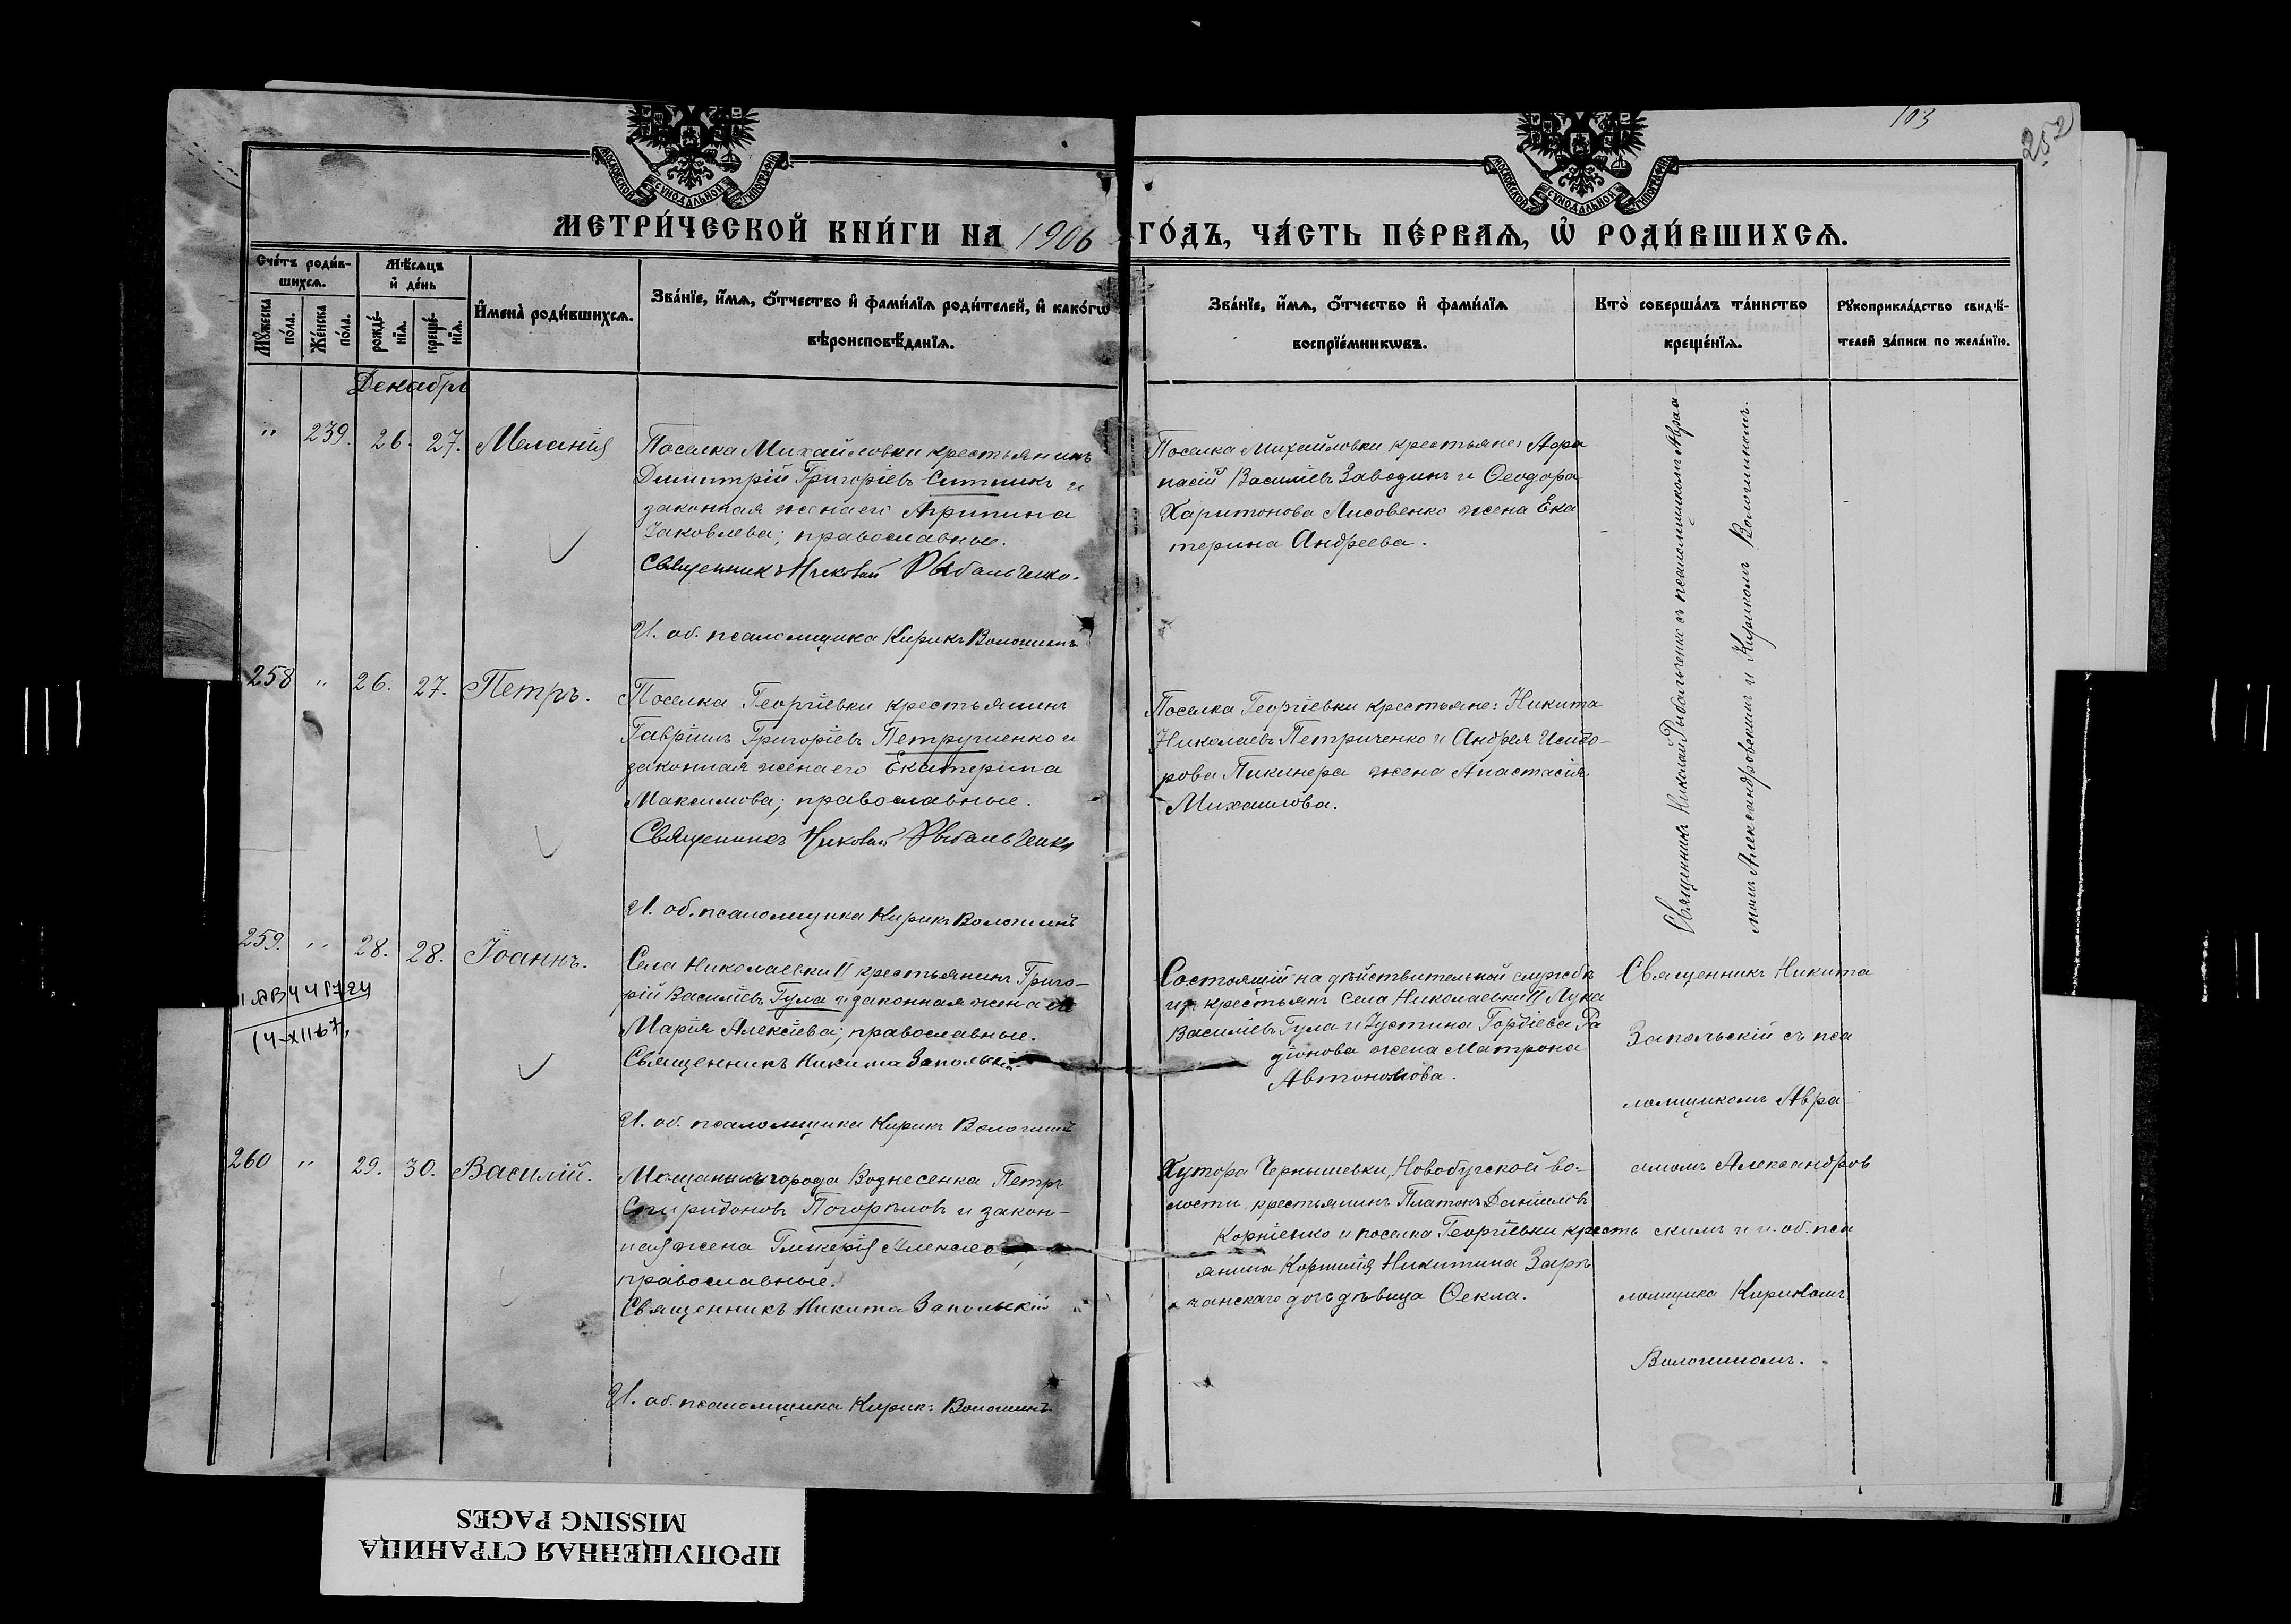 103
252
МОСКОВСКОЙ СУНОДАЛЬНОЙ ТИПОГРАФІИ
МОСКОВСКОЙ СУНОДАЛЬНОЙ ТИПОГРАФІИ
МЕТРИ́ЧЕСКОЙ КНИ́ГИ НА 1906 ГО́ДЪ, ЧА́СТЬ ПЕ́РВАѦ, Ѡ҆ РОДИ́ВШИХСѦ.
Сче́тъ роди́в-
шихсѧ.
Мꙋ́жеска по́ла.
Же́нска по́ла.
Мѣ́сѧцъ
и҆ де́нь
рожде́-
нїѧ.
креще́-
нїѧ.
И҆мена̀ роди́вшихсѧ.
Зва́нїе, и҆́мѧ, ѻ҆́тчество и҆ фами́лїѧ роди́телей, и҆ како́гѡ
вѣроисповѣ́данїѧ.
Зва́нїе, и҆́мѧ, ѻ҆́тчество и҆ фами́лїѧ
воспрїе́мникѡвъ.
Кто̀ соверша́лъ та́инство
креще́нїѧ.
Рꙋкоприкла́дство свидѣ́-
телей за́писи по жела́нїю.
Декабрь
" 239. 26. 27. Меланія
Поселка Михайловки крестьянинъ
Димитрій Григоріевъ Ситникъ и
законная жена его Агрипина
Іаковлева; православные.
Священникъ Николай Рыбальченко.
И. об. псаломщика Кирикъ Волошинъ
Поселка Михайловки крестьяне: Афа
насій Василіевъ Заводинъ и Ѳеодора
Харитонова Лисовенко жена Ека
терина Андреева.
Священникъ Николай Рыбальченко съ псаломщикомъ Авраа
момъ Александровскимъ и Кирикомъ Волошиномъ.
258 " 26. 27. Петръ.
Поселка Георгіевки крестьянинъ
Гавріилъ Григоріевъ Петрушенко и
законная жена его Екатерина
Максимова; православные.
Священникъ Николай Рыбальченко
И. об. псаломщика Кирикъ Волошинъ
Поселка Георгіевки крестьяне: Никита
Николаевъ Петриченко и Андрея Исидо-
рова Пикинера жена Анастасія
Михаилова.
259. " 28. 28. Іоаннъ.
14-XII 67,
Села Николаевки II крестьянинъ Григо-
рій Василіевъ Гула и законная жена его
Марія Алексіева; православные.
Священникъ Никита Запольскій
И. об. псаломщика Кирикъ Волошинъ
Состоящій на дѣйствительной службѣ
изъ крестьянъ села Николаевки II Лука
Василіевъ Гула и Іустина Гордіева Ра
діонова жена Матрона
Автономова.
Священникъ Никита
Запольскій съ пса
ломщикомъ Авра-
амомъ Александров
скимъ и и. об. пса
ломщика Кирикомъ
Волошиномъ.
260 " 29. 30. Василій.
Мѣщанинъ города Вознесенка Петръ
Спиридоновъ Погорѣловъ и закон-
ная жена Гликерія Алексіева,
православные.
Священникъ Никита Запольскій
И. об. псаломщика Кирикъ Волошинъ
Хутора Чернышевки, Новобугской во-
лости, крестьянинъ Платонъ Даніиловъ
Корніенко и поселка Георгіевки кресть
янина Корнилія Никитина Зарѣ
чанскаго дочь дѣвица Ѳекла.
ПРОПУЩЕННАЯ СТРАНИЦА
MISSING PAGES